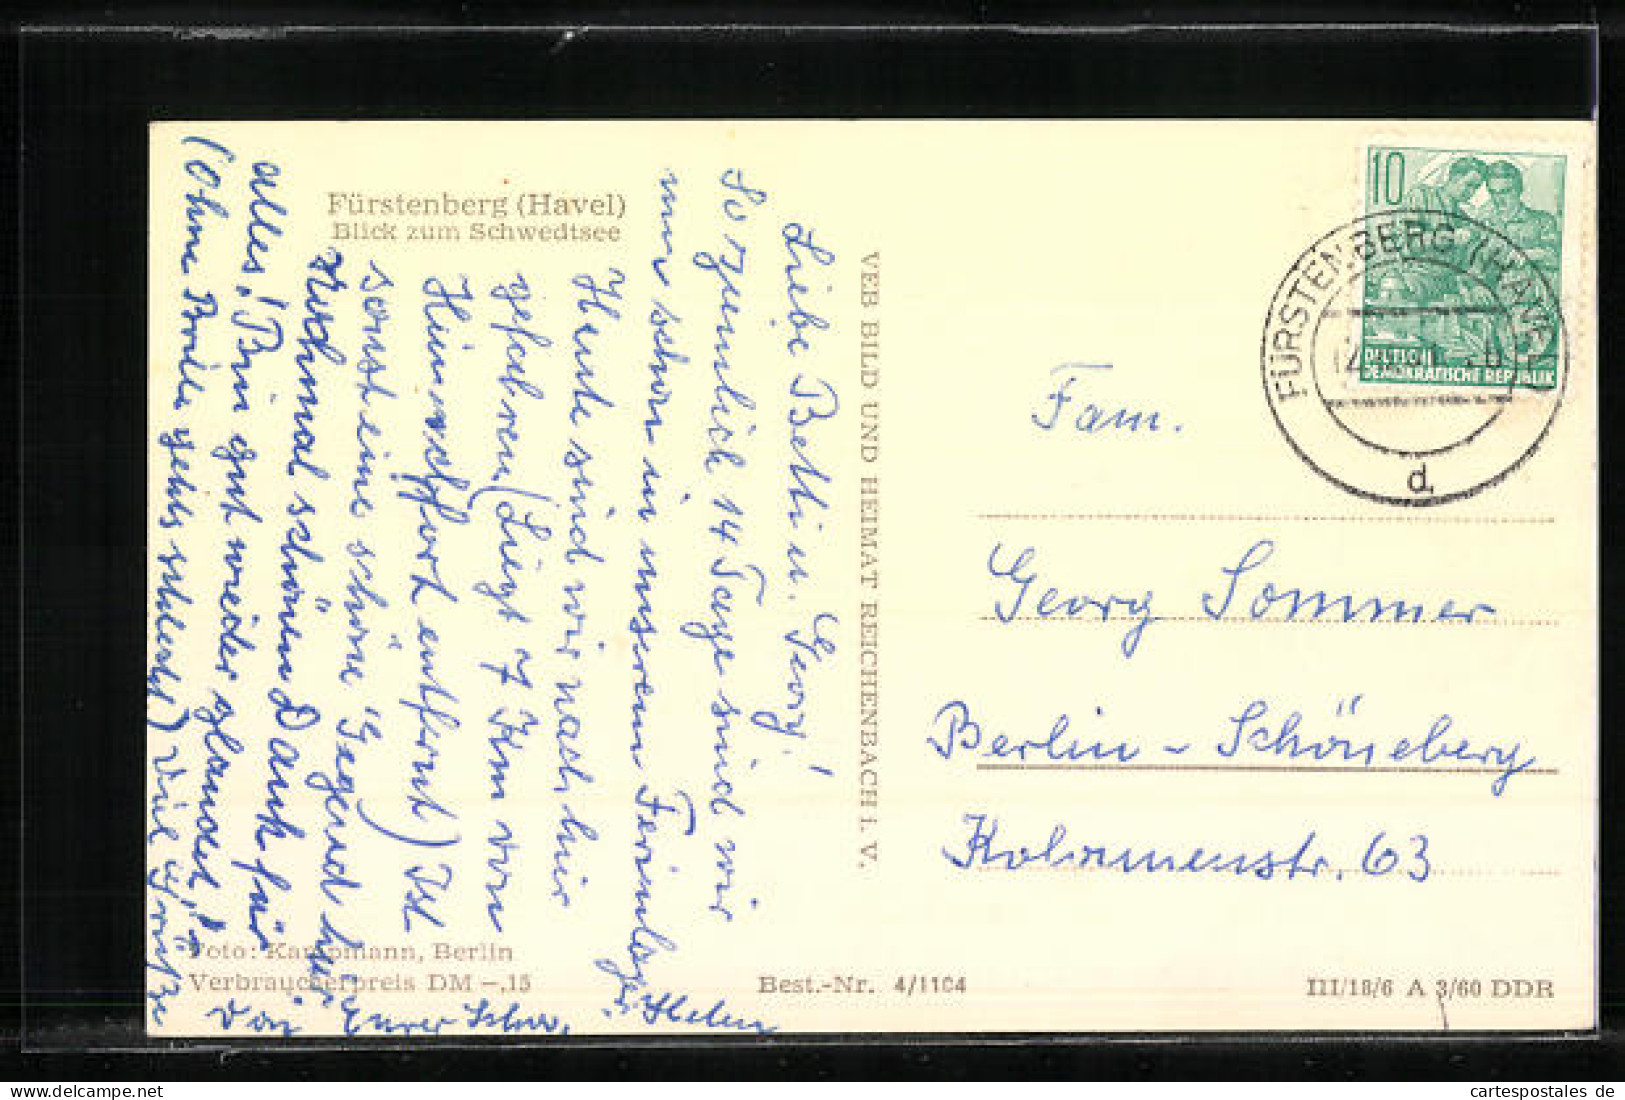 Fürstenberg (Havel)
Blick zum Schwedtsee
Liebe Betti u. Georg!
So ziemlich 14 Tage sind wir
nun schon in unserem Ferienlager
Heute sind wir nach hier
gefahren (Liegt 7 Km von
Himmelpfort entfernt) Ist
sonst eine schöne Gegend hier
Nochmal schönen Dank für
alles! Bin gut wieder gelandet!
(Ohne Brille gehts schlecht) Viel Grüße
von Eurer Helen
VEB BILD UND HEIMAT REICHENBACH I. V.
Foto: Kampmann, Berlin
Verbraucherpreis DM -,15
Best.-Nr. 4/1104
III/18/6 A 3/60 DDR
10
DEUTSCHE
DEMOKRATISCHE REPUBLIK
FÜRSTENBERG (HAVEL)
d
Fam.
Georg Sommer
Berlin - Schöneberg
Kolonnenstr. 63
cartespostales de